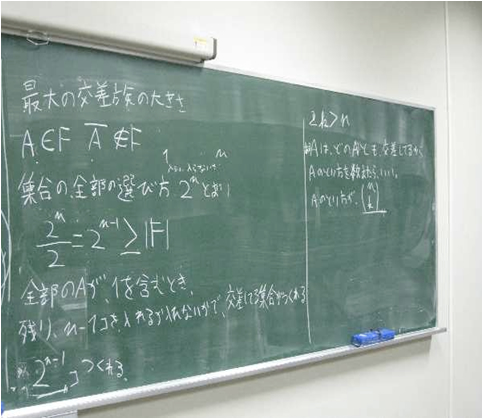 最大の交差族の大きさ
A∈F Ā∉F
1 n
入る、入らない
集合の全部の選び方 2ⁿとおり
2ⁿ/2 = 2ⁿ⁻¹ ≥ |F|
全部のAが、1を含むとき、
残り、n-1コを入れるか入れないかで、交差してる集合がつくれる
2ⁿ⁻¹コつくれる。
2k>n
Aは、どのAとも、交差してるから
Aのとり方を数えたらいい。
Aのとり方が、(n k)